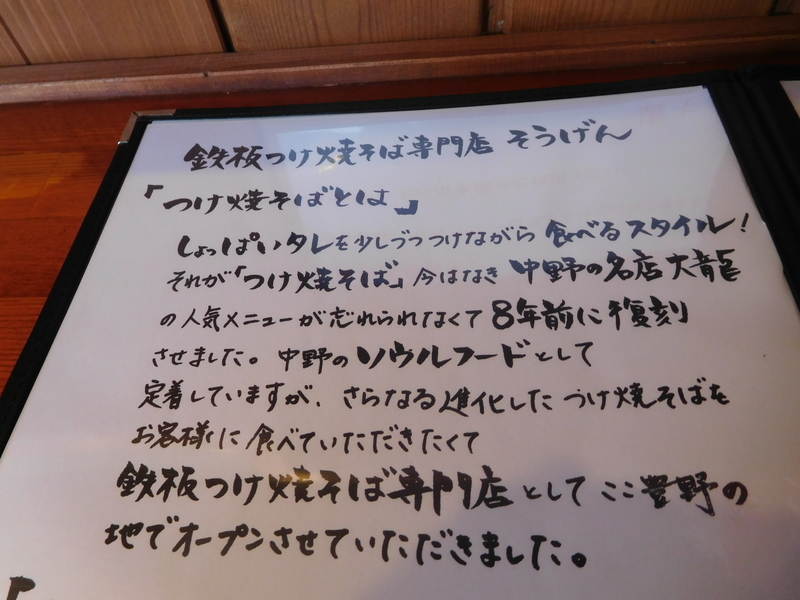 鉄板つけ焼そば専門店 そうげん
「つけ焼そばとは」
しょっぱいタレを少しづつつけながら 食べるスタイル!
それが「つけ焼そば」今はなき 中野の名店大龍
の人気メニューが忘れられなくて8年前に復刻
させました。中野のソウルフードとして
定着していますが、さらなる進化した つけ焼そばを
お客様に食べていただきたくて
鉄板つけ焼そば専門店として ここ豊野の
地でオープンさせていただきました。
「